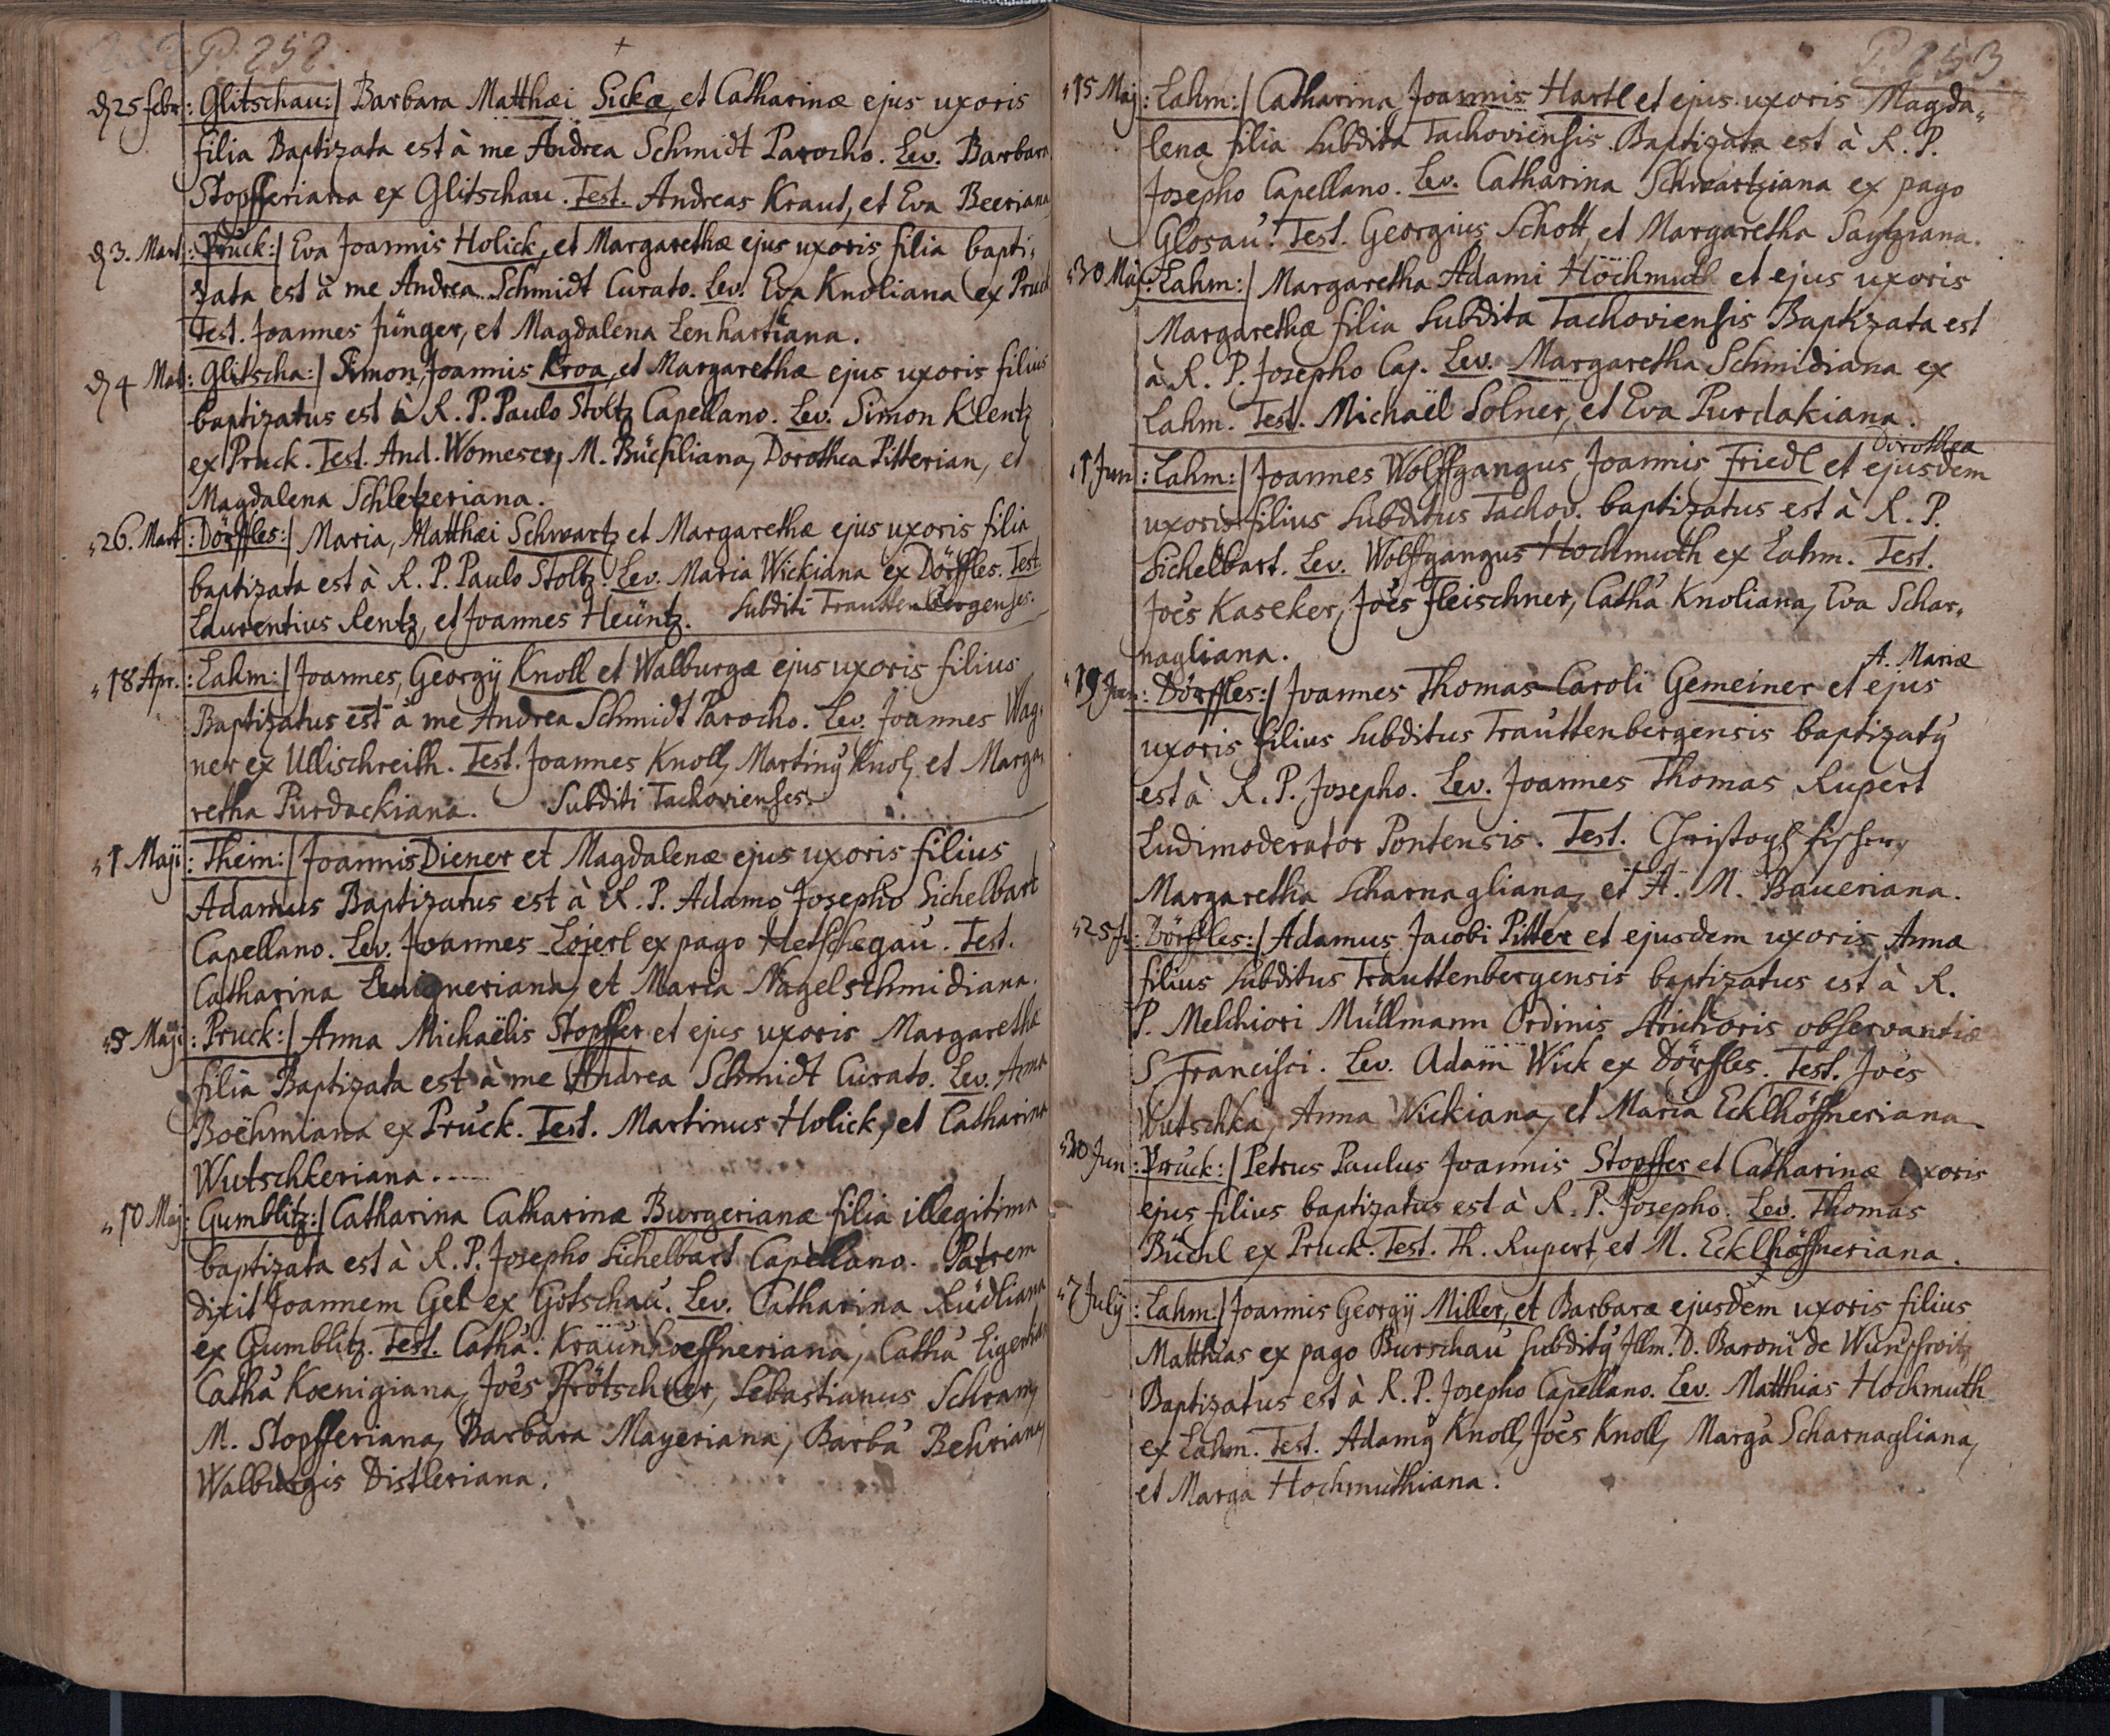 P. 252.
d 25 febr: Glitschau:/ Barbara Matthæi Sickæ, et Catharinæ ejus uxoris
filia Baptizata est à me Andrea Schmidt Parocho. Lev. Barbara
Stopfferiana ex Glitschau. Test. Andreas Kraut, et Eva Beeriana
d 3. Mart: Pruck:/ Eva Joannis Holick, et Margarethæ ejus uxoris filia bapti,
zata est à me Andrea Schmidt Curato. Lev. Eva Knoliana ex Pruck
Test. Joannes Jünger, et Magdalena Lenhartiana.
d 4 Mar: Glitscha:/ Simon, Joannis Kroa, et Margarethæ ejus uxoris filius
baptizatus est à R. P. Paulo Stoltz Capellano. Lev. Simon Klentz
ex Pruck. Test. And. Womeser, M. Büchliana, Dorothea Pitterian, et
Magdalena Schletzeriana.
26. Mart: Dörffles:/ Maria, Matthæi Schwartz et Margarethæ ejus uxoris filia
baptizata est à R. P. Paulo Stoltz. Lev. Maria Wickiana ex Dörffles. Test.
Laurentius Rentz, et Joannes Heüntz. Subditi Trauttenbergenses.
18 Apr.: Lahm:/ Joannes, Georgÿ Knoll et Walburgæ ejus uxoris filius
Baptizatus est à me Andrea Schmidt Parocho. Lev. Joannes Wag,
ner ex Ullischreith. Test. Joannes Knoll, Martinꝰ Knol, et Marga,
retha Purdackiana. Subditi Tachovienses.
1 Maji: Theim:/ Joannis Diener et Magdalenæ ejus uxoris filius
Adamus Baptizatus est à R. P. Adamo Josepho Sichelbart
Capellano. Lev. Joannes Loierl ex pago Hetschegau. Test.
Catharina et Maria Nagelschmidiana.
8 Maji: Pruck:/ Anna Michaëlis Stopffer et ejus uxoris Margarethæ
filia Baptizata est à me Andrea Schmidt Curato. Lev. Anna
Boëhmiana ex Pruck. Test. Martinus Holick, et Catharina
Wutschkeriana.
10 Maj: Gumblitz:/ Catharina Catharinæ Burgerianæ filia illegitima
baptizata est à R. P. Josepho Sichelbart Capellano. Patrem
dixit Joannem Gel ex Gotschau. Lev. Catharina Rüdliana
ex Gumblitz. Test. Catha: Kraünhoeffneriana, Catha
Catha Koenigiana, Joes Pfrötschner, Sebastianus Schram,
M. Stopfferiana, Barbara Mayeriana, Barba Behriana,
Walburgis Distleriana.
P. 253
15 Maj: Lahm:/ Catharina Joannis Hartl et ejus uxoris Magda,
lenæ filia Subdita Tachoviensis Baptizata est à R. P.
Josepho Capellano. Lev. Catharina Schwartziana ex pago
Glosau. Test. Georgius Schott, et Margaretha Saytziana.
30 Maj: Lahm:/ Margaretha Adami Hochmutl et ejus uxoris
Margarethæ filia Subdita Tachoviensis Baptizata est
à R. P. Josepho Cap. Lev. Margaretha Schmidiana ex
Lahm. Test. Michaël Solner, et Eva Purdakiana.
Dorothea
1 Jun: Lahm:/ Joannes Wolffgangus Joannis Friedl et ejusdem
uxoris filius Subditus Tachov. baptizatus est à R. P.
Sichelbart. Lev. Wolffgangus Hochmuth ex Lahm. Test.
Joës Kaseker, Joës Fleischner, Catha Knoliana, Eva Schar,
nagliana.
A. Mariæ
19 Jun: Dörffles:/ Joannes Thomas Caroli Gemeiner et ejus
uxoris filius Subditus Trauttenbergensis baptizatꝰ
est à R. P. Josepho. Lev. Joannes Thomas Rupert
Ludimoderator Pontensis. Test. Christoph fischer,
Margaretha Scharnagliana, et A. M. Baueriana.
25 Ju: Dörffles:/ Adamus Jacobi Pitter et ejusdem uxoris Annæ
filius Subditus Trauttenbergensis baptizatus est à R.
P. Melchiori Müllmann Ordinis Strictioris observantiæ
S. Francisci. Lev. Adam Wick ex Dörffles. Test. Joës
Wutschka, Anna Wickiana, et Maria Ecklhöffneriana.
30 Jun: Pruck:/ Petrus Paulus Joannis Stopffer et Catharinæ uxoris
ejus filius baptizatus est à R. P. Josepho. Lev. Thomas
Büchl ex Pruck. Test. Th. Rupert, et M. Ecklhöffneriana.
7 Julÿ: Lahm:/ Joannis Georgÿ Miller, et Barbaræ ejusdem uxoris filius
Matthias ex pago Burschau Subditꝰ Illm. D. Baroni de
Baptizatus est à R. P. Josepho Capellano. Lev. Matthias Hochmuth
ex Lahm. Test. Adamꝰ Knoll, Joës Knoll, Marga Scharnagliana,
et Marga Hochmuthiana.